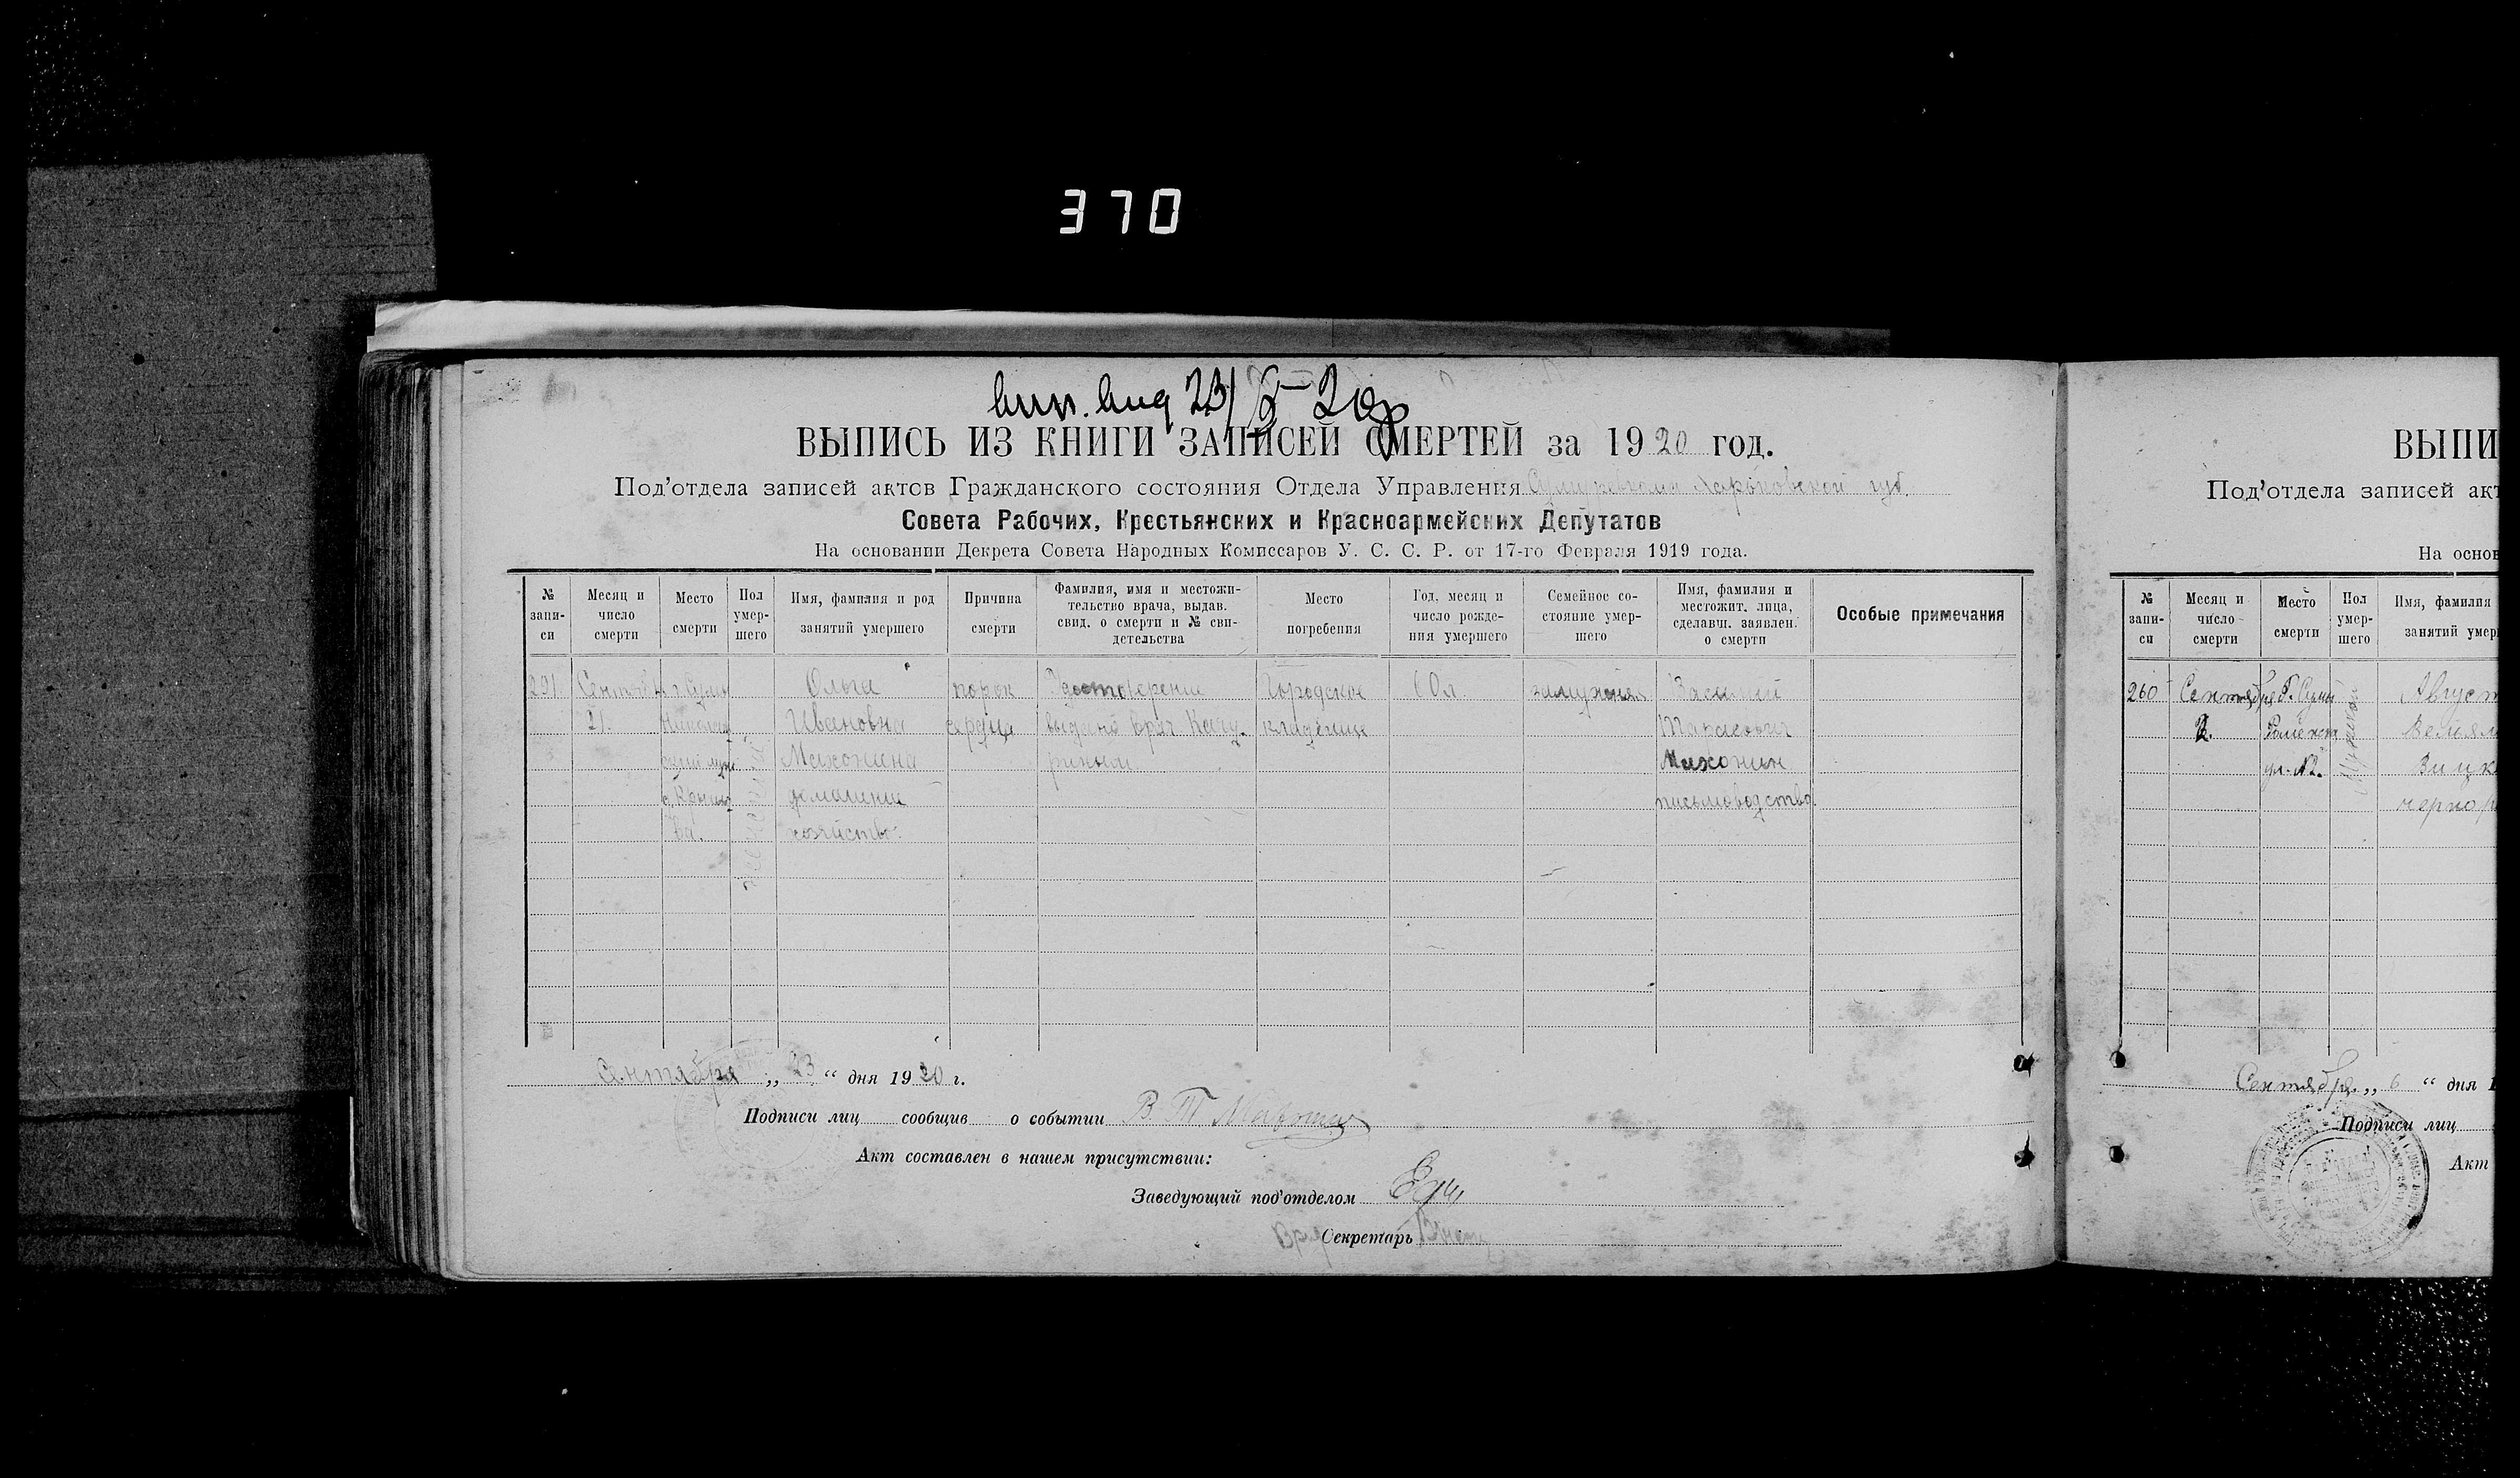 370
ВЫПИСЬ ИЗ КНИГИ ЗАПИСЕЙ СМЕРТЕЙ за 1920 год.
Под'отдела записей актов Гражданского состояния Отдела Управления Харьковской губ.
Совета Рабочих, Крестьянских и Красноармейских Депутатов
На основании Декрета Совета Народных Комиссаров У. С. С. Р. от 17-го Февраля 1919 года.
№ записи
Месяц и число смерти
Место смерти
Пол умершего
Имя, фамилия и род занятий умершего
Причина смерти
Фамилия, имя и местожительство врача, выдав. свид. о смерти и № свидетельства
Место погребения
Год, месяц и число рождения умершего
Семейное состояние умершего
Имя, фамилия и местожит. лица, сделавш. заявлен. о смерти
Особые примечания
291 г. Сумы Ольга порок Городское 60 л. замужняя Василий
21. Ивановна сердца выдано врач. кладбище Тарасович
Махонина Махонин
домашнее письмоводство
хозяйство.
Сентября „ 23 “ дня 1920 г.
Подписи лиц сообщив о событии В. Т.
Акт составлен в нашем присутствии:
Заведующий под'отделом
Секретарь
ВЫПИ
Под'отдела записей акт
На основ
№ записи
Месяц и число смерти
Место смерти
Пол умершего
Имя, фамилия
занятий умер
260 Сентября г. Сумы Август
2.
ул. №2.
чернор
Сентября „ 6 “ дня 1
Подписи лиц
Акт